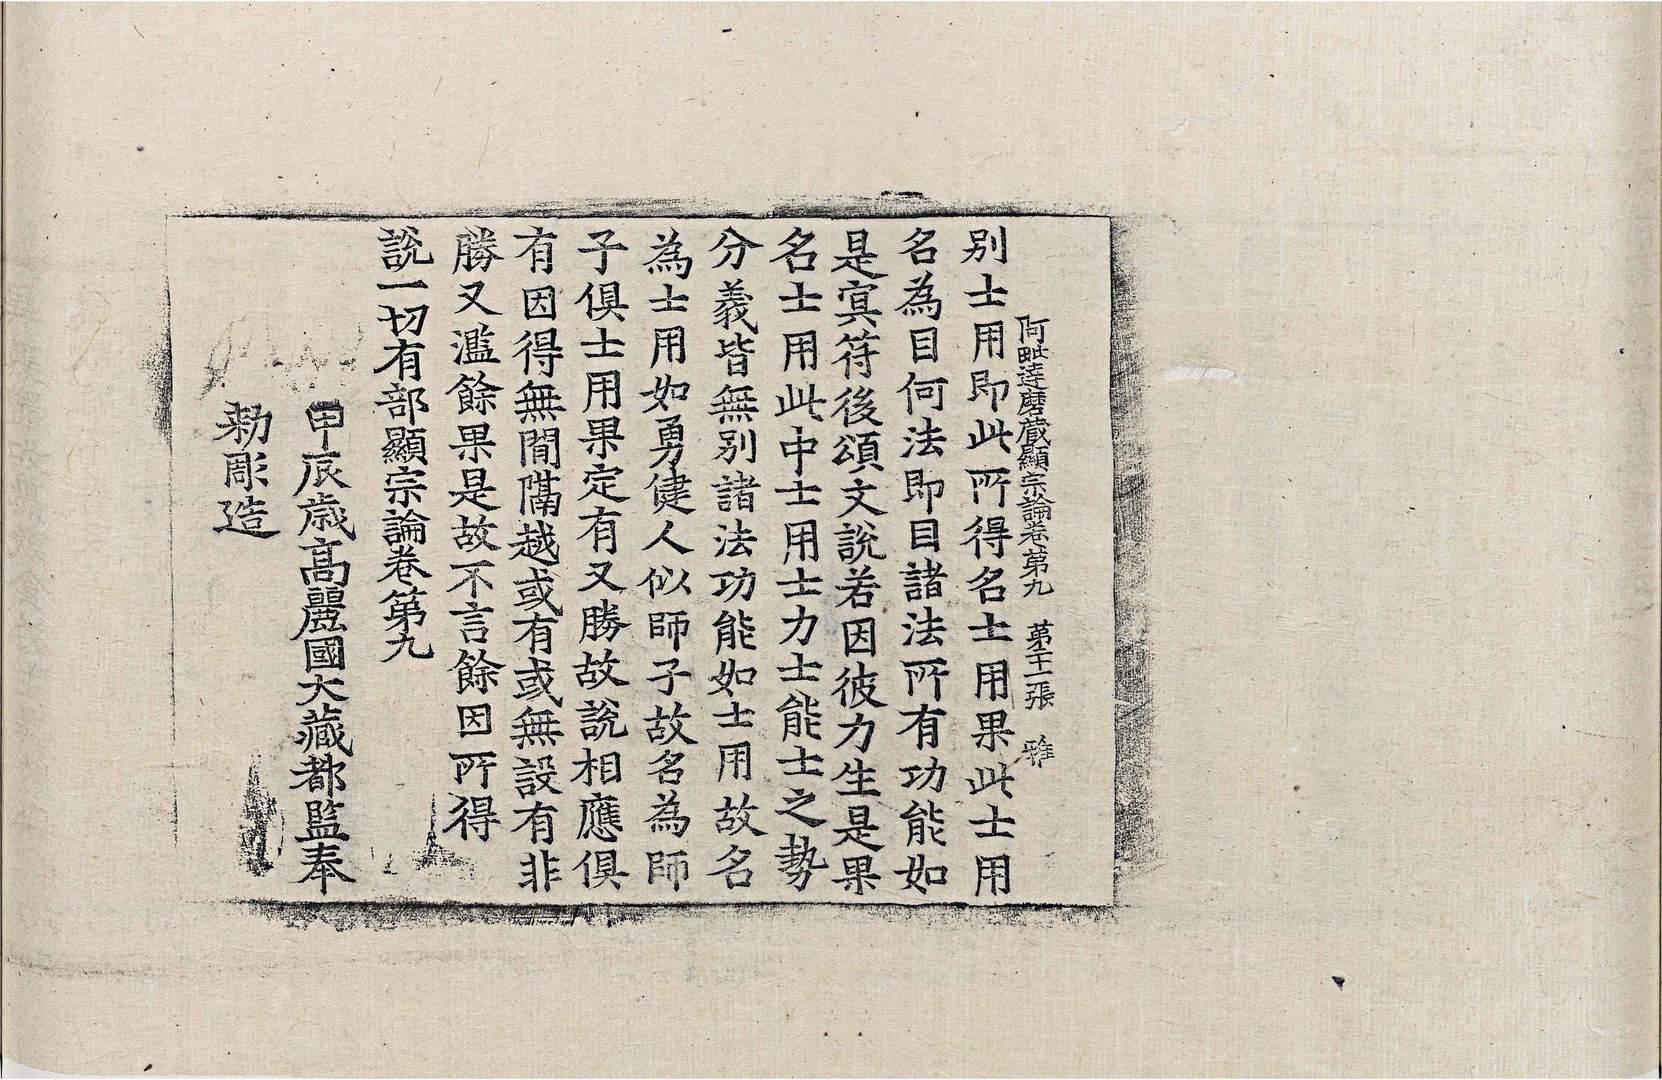 阿毗達磨藏顯宗論卷第九 第二十一張 雅
別士用即此所得名士用果此士用
名為目何法即目諸法所有功能如
是寞符後頌文說若因彼力生是果
名士用此中士用士力士能士之勢
分義皆無別諸法功能如士用故名
為士用如勇健人似師子故名為師
子俱士用果定有又勝故說相應俱
有因得無間隔越或有或無設有非
勝又濫餘果是故不言餘因所得
說一切有部顯宗論卷第九
甲辰歲高麗國大藏都監奉
勑彫造